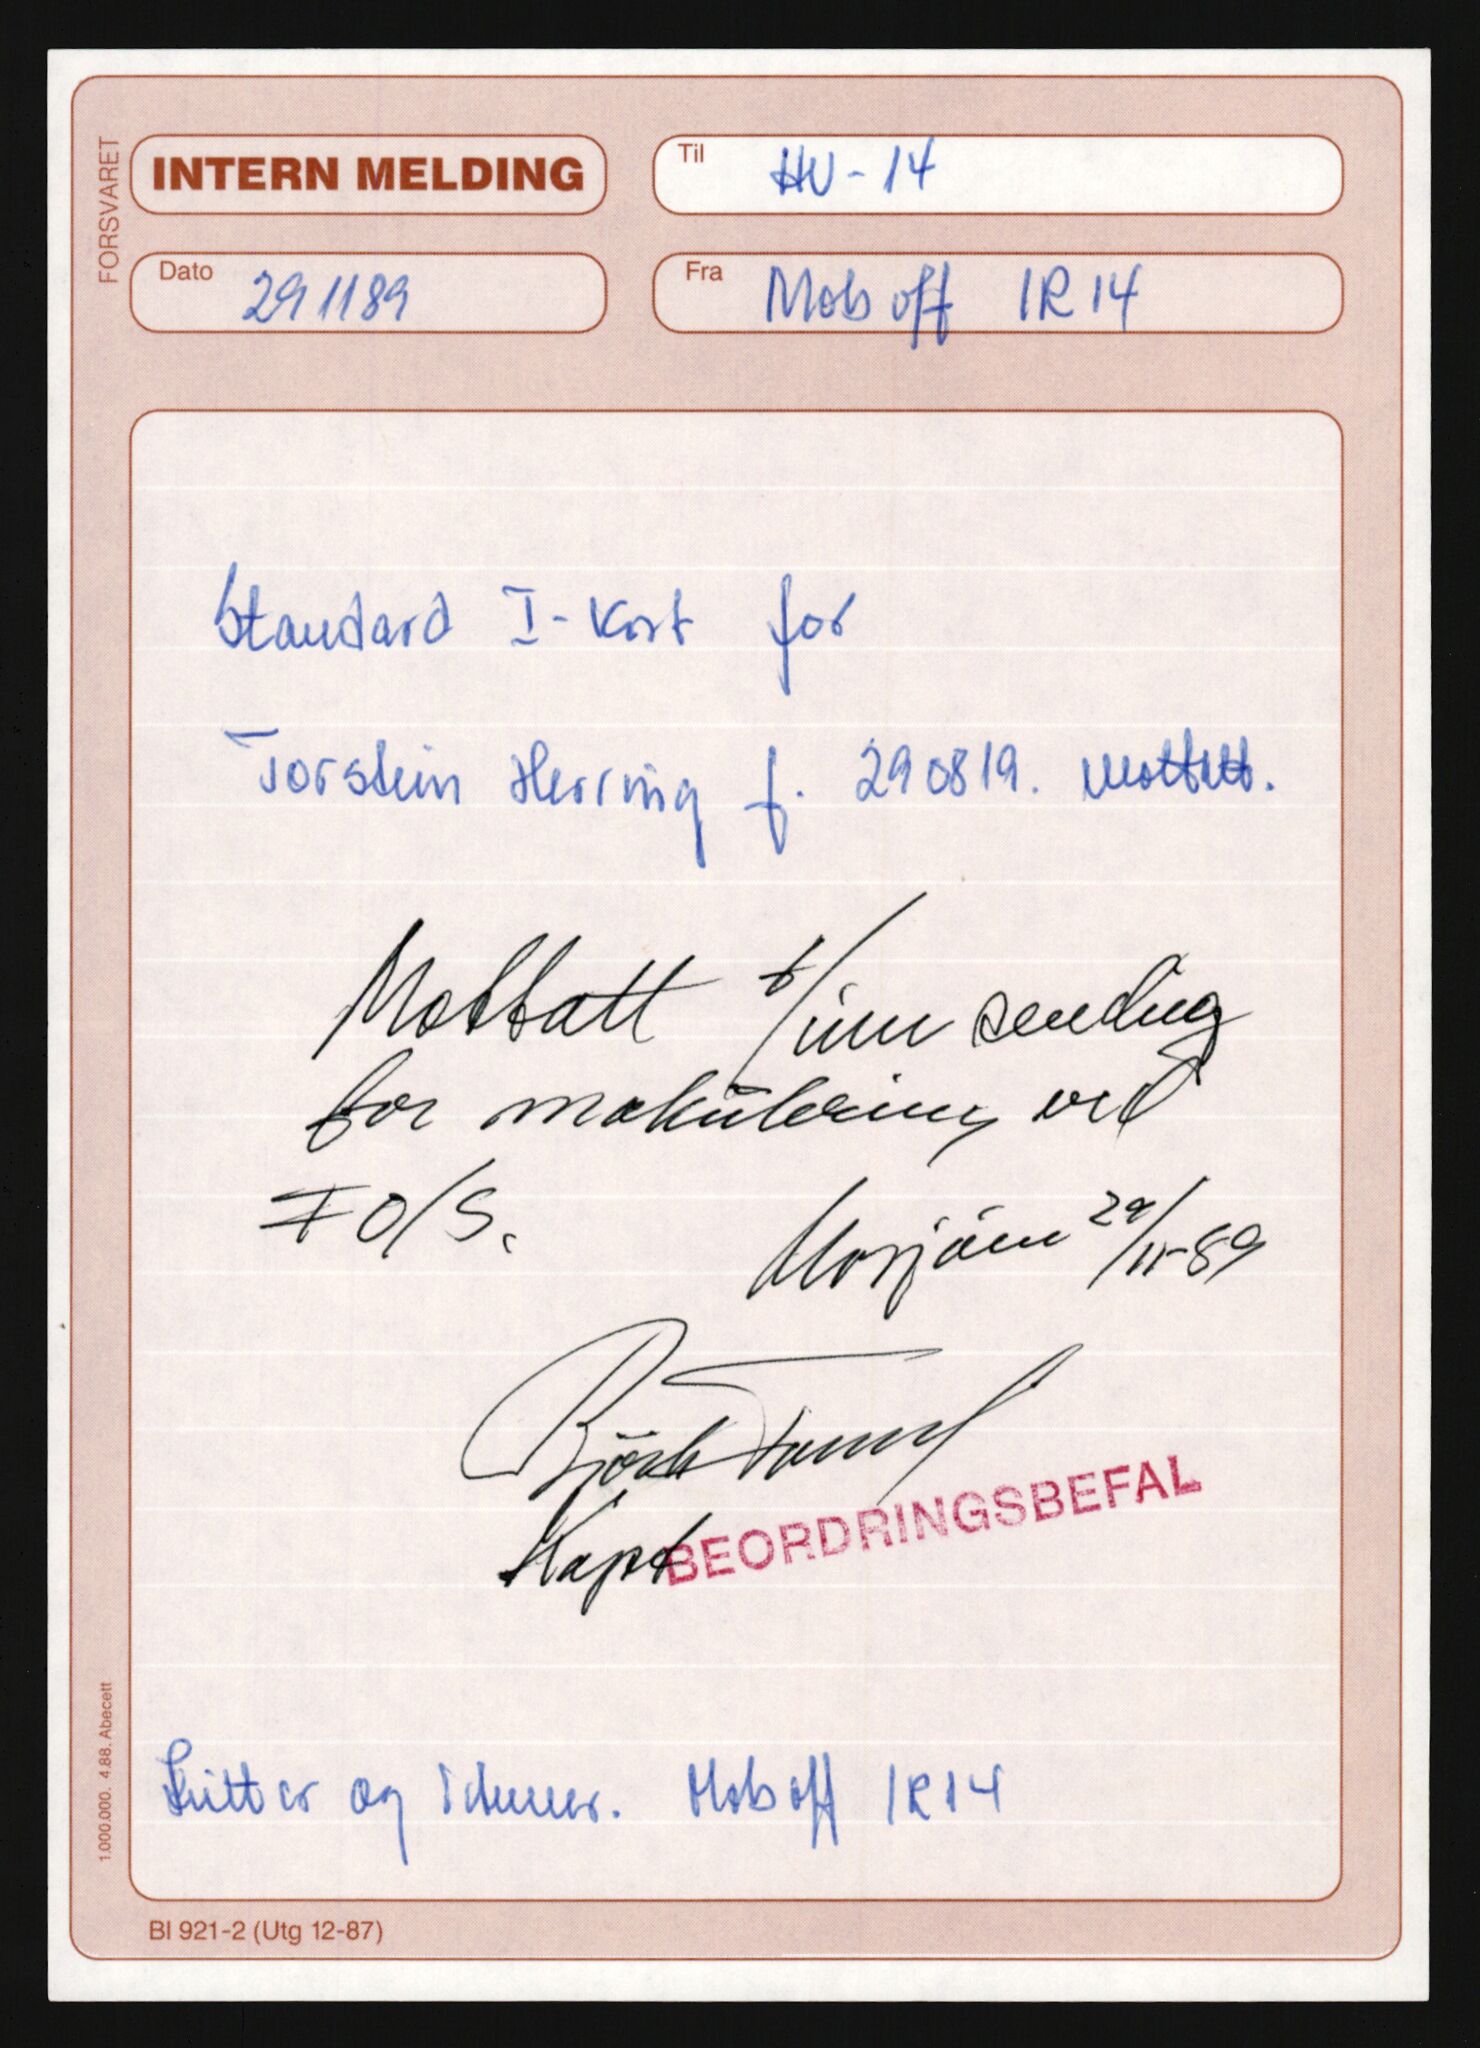 FORSVARET
INTERN MELDING
Til HV-14
Dato 291189
Fra Mob off IR 14
Standard I-kort for
Torstein Herring f. 290819. Mottatt.
Mottatt t/inn sending
for makulering ved
FO/S.
Mosjøen 29/11-89
Kapt
BEORDRINGSBEFAL
Kvitter og Mob off IR 14
1.000.000. 4.88. Abecett
Bl 921-2 (Utg 12-87)